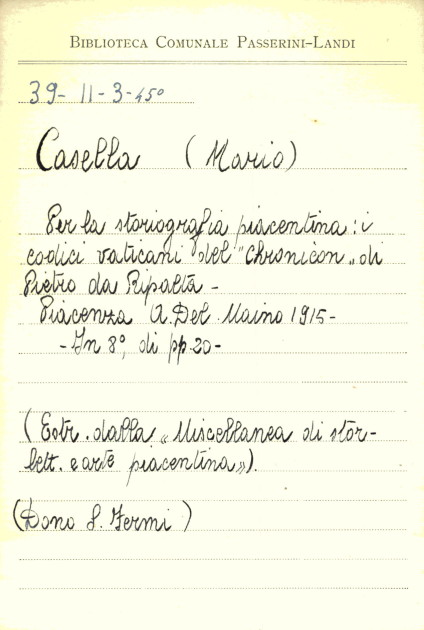 BIBLIOTECA COMUNALE PASSERINI-LANDI
39- 11-3-45º
Casella (Mario)
Per la storiografia piacentina: i
codici vaticani del "Chronicon„ di
Pietro da Ripalta -
Piacenza A. Del Maino 1915-
- In 8º, di pp. 20-
(Estr. dalla « Miscellanea di stor-
lett. e arte piacentina»).
(Dono S. Fermi)